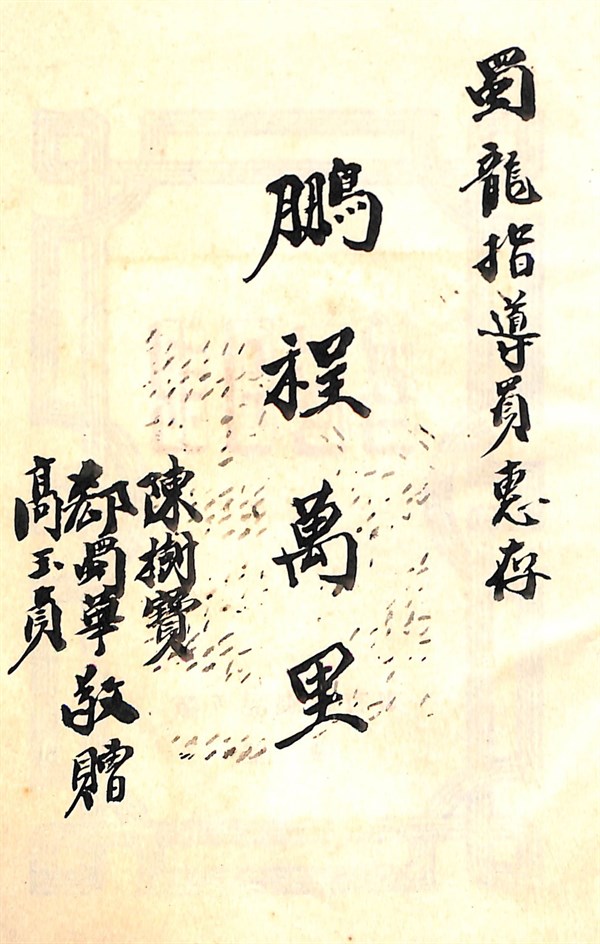 蜀龍指導員惠存
鵬程萬里
陳樹寶
郄蜀華
高玉貞
敬贈